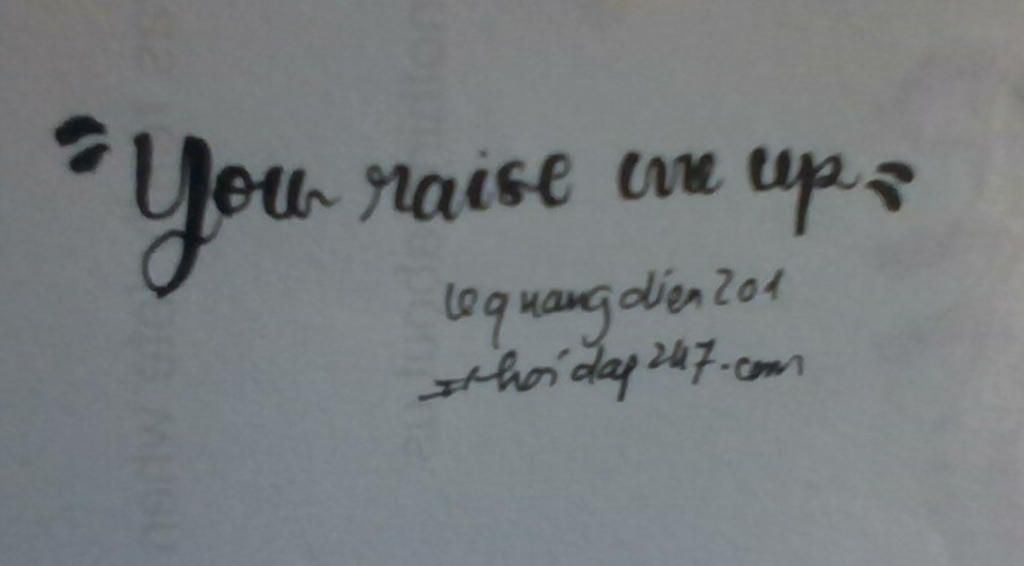 "You raise me up"
lequangdien201
hoidap247.com